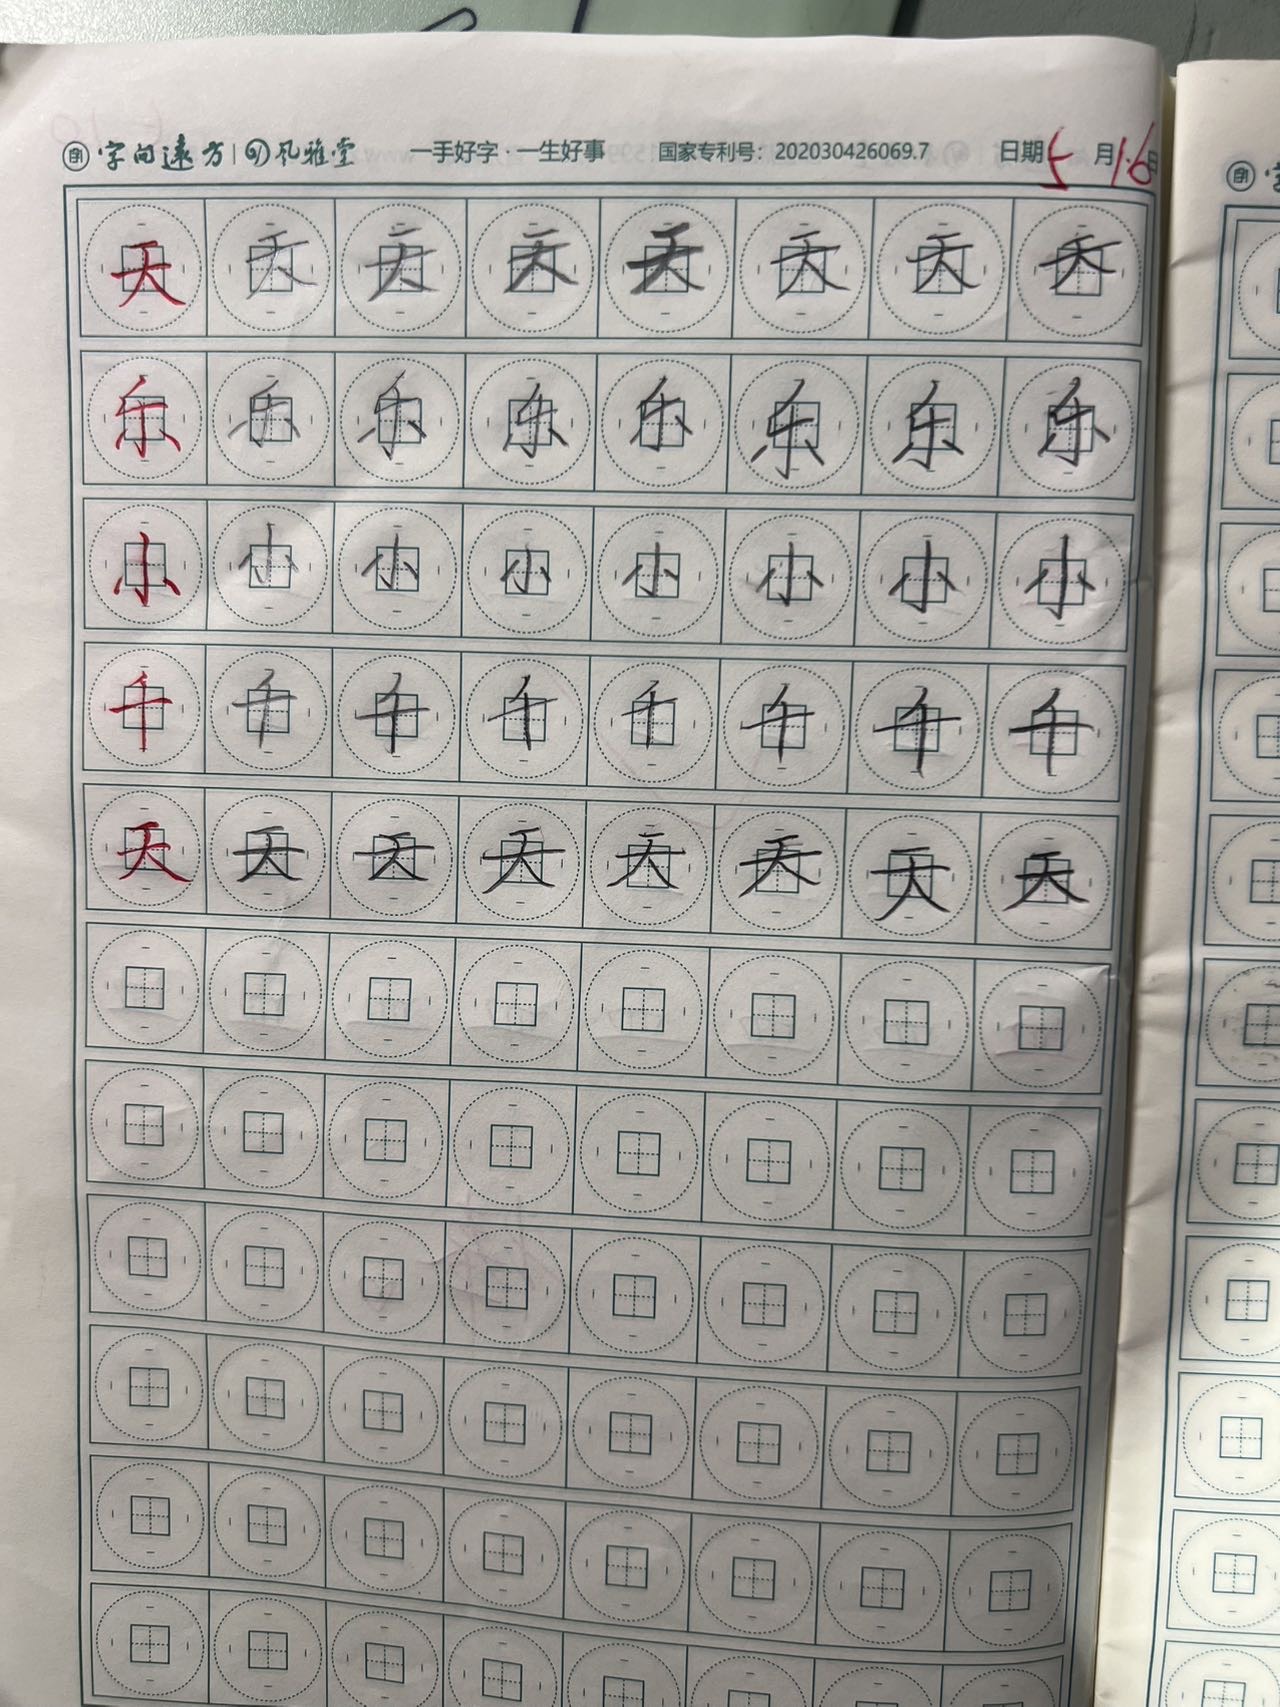 字间远方 | 风雅堂 一手好字·一生好事 国家专利号：202030426069.7 日期5月16日
天 天 天 天 天 天 天 天
乐 乐 乐 乐 乐 乐 乐 乐
小 小 小 小 小 小 小 小
千 千 千 千 千 千 千 千
天 天 天 天 天 天 天 天